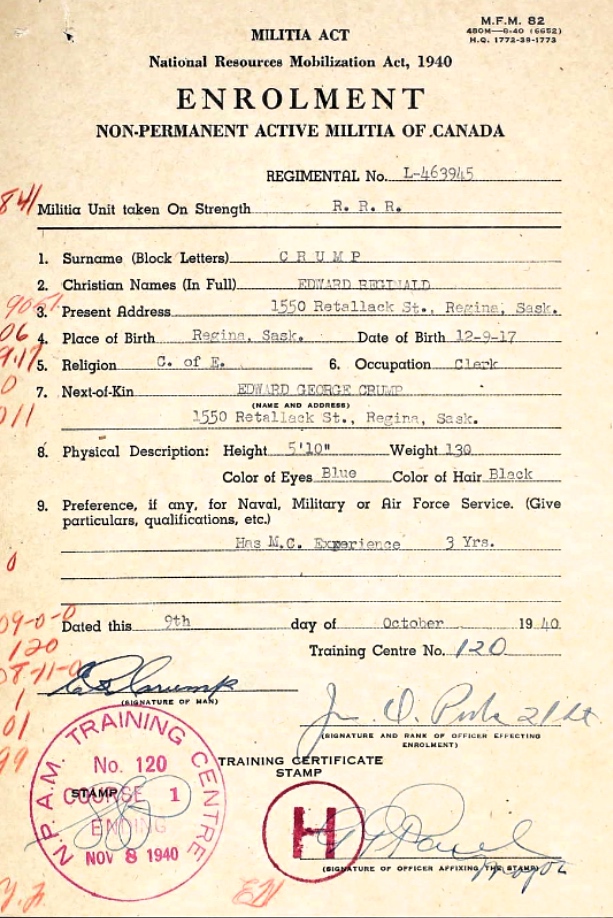 MILITIA ACT
M.F.M. 82
480M—9-40 (6652)
H.Q. 1772-39-1773
National Resources Mobilization Act, 1940
ENROLMENT
NON-PERMANENT ACTIVE MILITIA OF CANADA
REGIMENTAL No. L-463945
841
Militia Unit taken On Strength R. R. R.
1. Surname (Block Letters) CRUMP
2. Christian Names (In Full) EDWARD REGINALD
3. Present Address 1550 Retallack St., Regina, Sask.
06
4. Place of Birth Regina, Sask. Date of Birth 12-9-17
5. Religion C. of E. 6. Occupation Clerk
0
7. Next-of-Kin EDWARD GEORGE CRUMP
(NAME AND ADDRESS)
011
1550 Retallack St., Regina, Sask.
8. Physical Description: Height 5'10" Weight 130
Color of Eyes Blue Color of Hair Black
9. Preference, if any, for Naval, Military or Air Force Service. (Give
particulars, qualifications, etc.)
Has M.C. Experience 3 Yrs.
0
09-0-0
Dated this 9th day of October 1940
120
Training Centre No. 120
1
E R Crump
(SIGNATURE OF MAN)
01
(SIGNATURE AND RANK OF OFFICER EFFECTING
ENROLMENT)
99
TRAINING CERTIFICATE
STAMP
N.P.A.M. TRAINING CENTRE
No. 120
STAMP
COURSE 1
ENDING
NOV 8 1940
H
(SIGNATURE OF OFFICER AFFIXING THE STAMP)